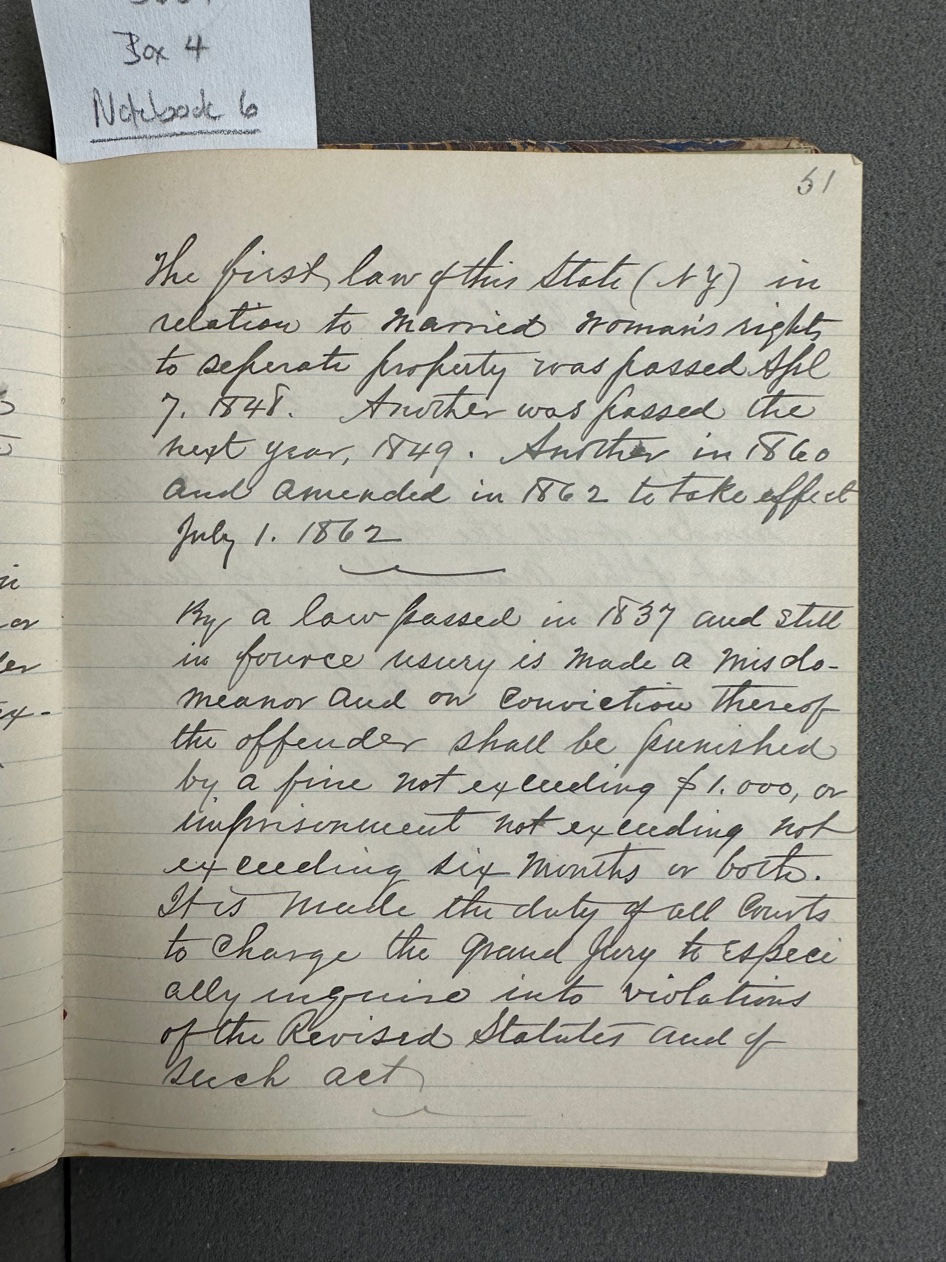 Box 4
Notebook 6
51
The first law of this State (NY) in
relation to Married Woman's rights
to seperate property was passed Apl
7. 1848. Another was passed the
next year, 1849. Another in 1860
and amended in 1862 to take effect
July 1. 1862
By a law passed in 1837 and still
in fource usury is made a misde-
meanor and on conviction thereof
the offender shall be punished
by a fine not exceeding $1.000, or
imprisonment not exceeding not
exceeding six months or both.
It is made the duty of all Courts
to charge the Grand Jury to especi
ally inquire into violations
of the Revised Statutes and of
such act